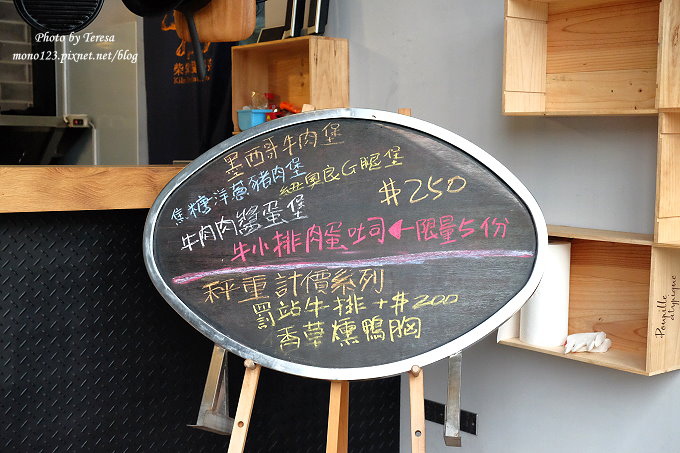 Photo by Teresa
mono123.pixnet.net/blog
墨西哥牛肉堡
焦糖洋蔥豬肉堡
紐奧良G腿堡
牛肉肉醬蛋堡
#250
牛小排肉蛋吐司←限量5份
秤重計價系列
罰站牛排+#200
香草燻鴨胸
Poupille
atypique